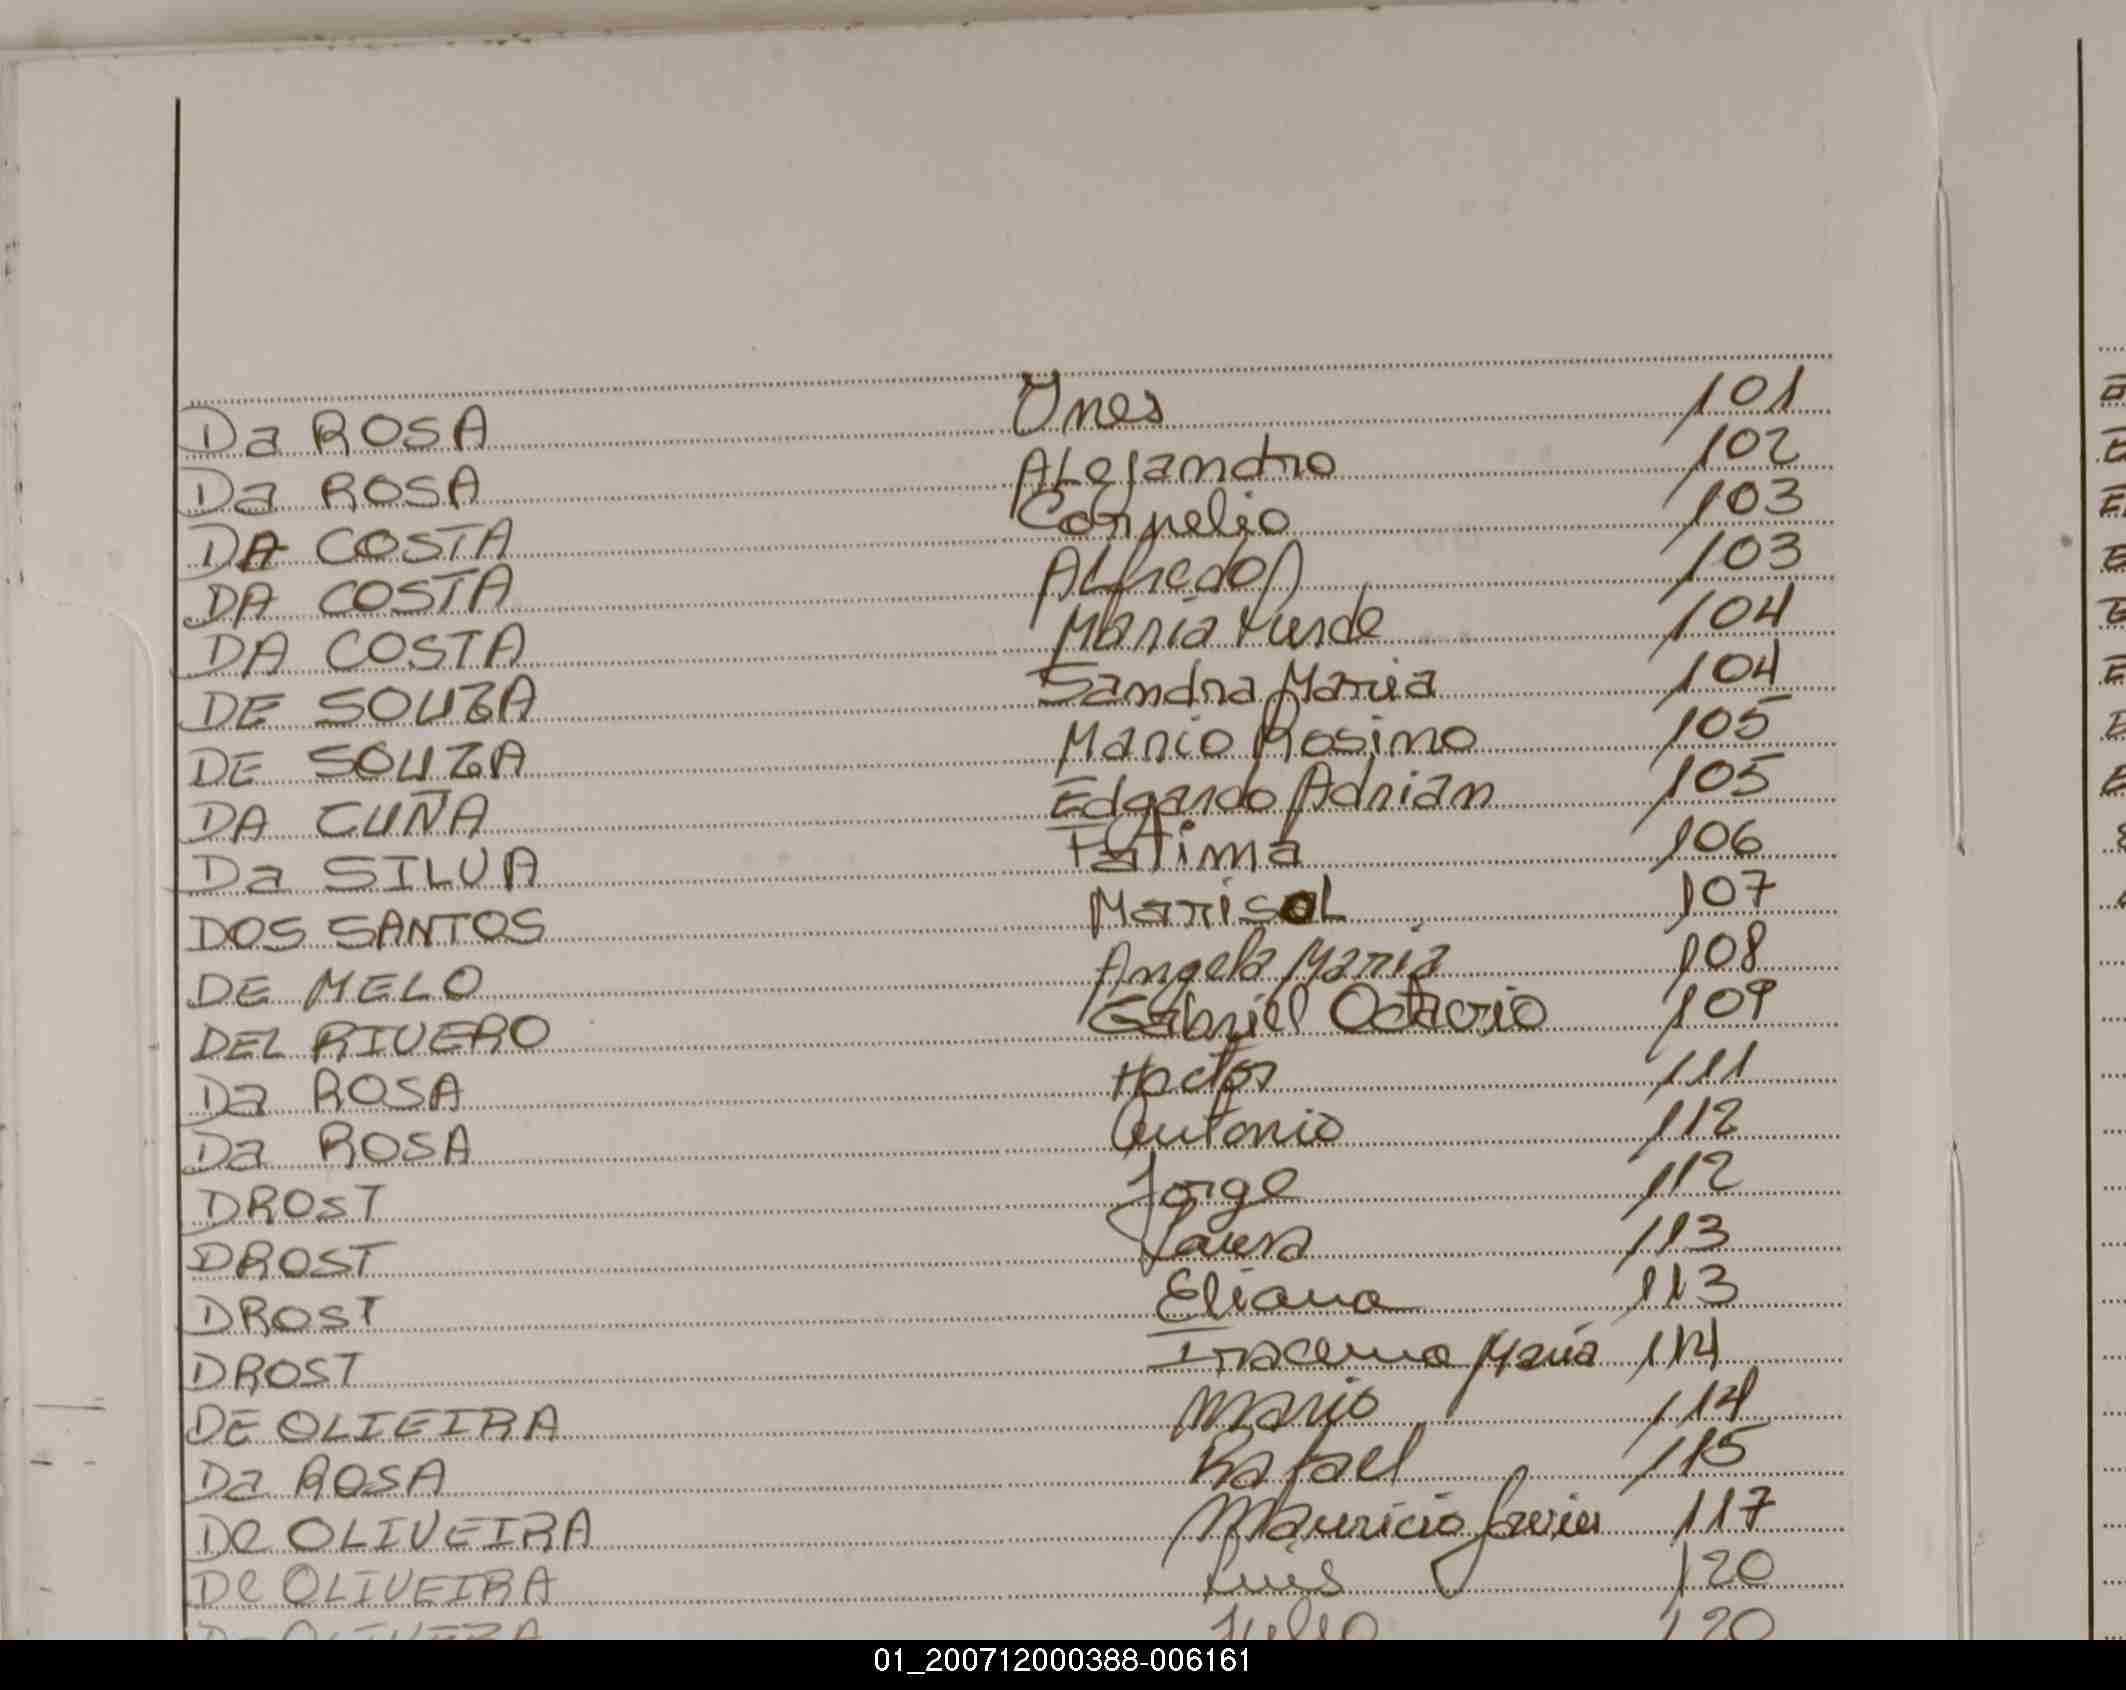 Da ROSA Ynes 101
Da ROSA ALejandro 102
DA COSTA Cornelio 103
DA COSTA ALfredo 103
DA COSTA Maria 104
DE SOUZA Sandra Maria 104
DE SOUZA Mario Rosimo 105
DA CUÑA Edgardo Adrian 105
Da SILVA Fatima 106
DOS SANTOS MarisoL 107
DE MELO Angela Maria 108
DEL RIVERO Gabriel Octavio 109
Da ROSA Hector 111
Da ROSA Antonio 112
DROST Jorge 112
DROST Laura 113
DROST Eliana 113
DROST Iracema Maria 114
DE OLIEIRA Mario 114
Da ROSA Rafael 115
De OLIVEIRA Mauricio Javier 117
De OLIVEIRA Luis 120
Julio 120
01_200712000388-006161